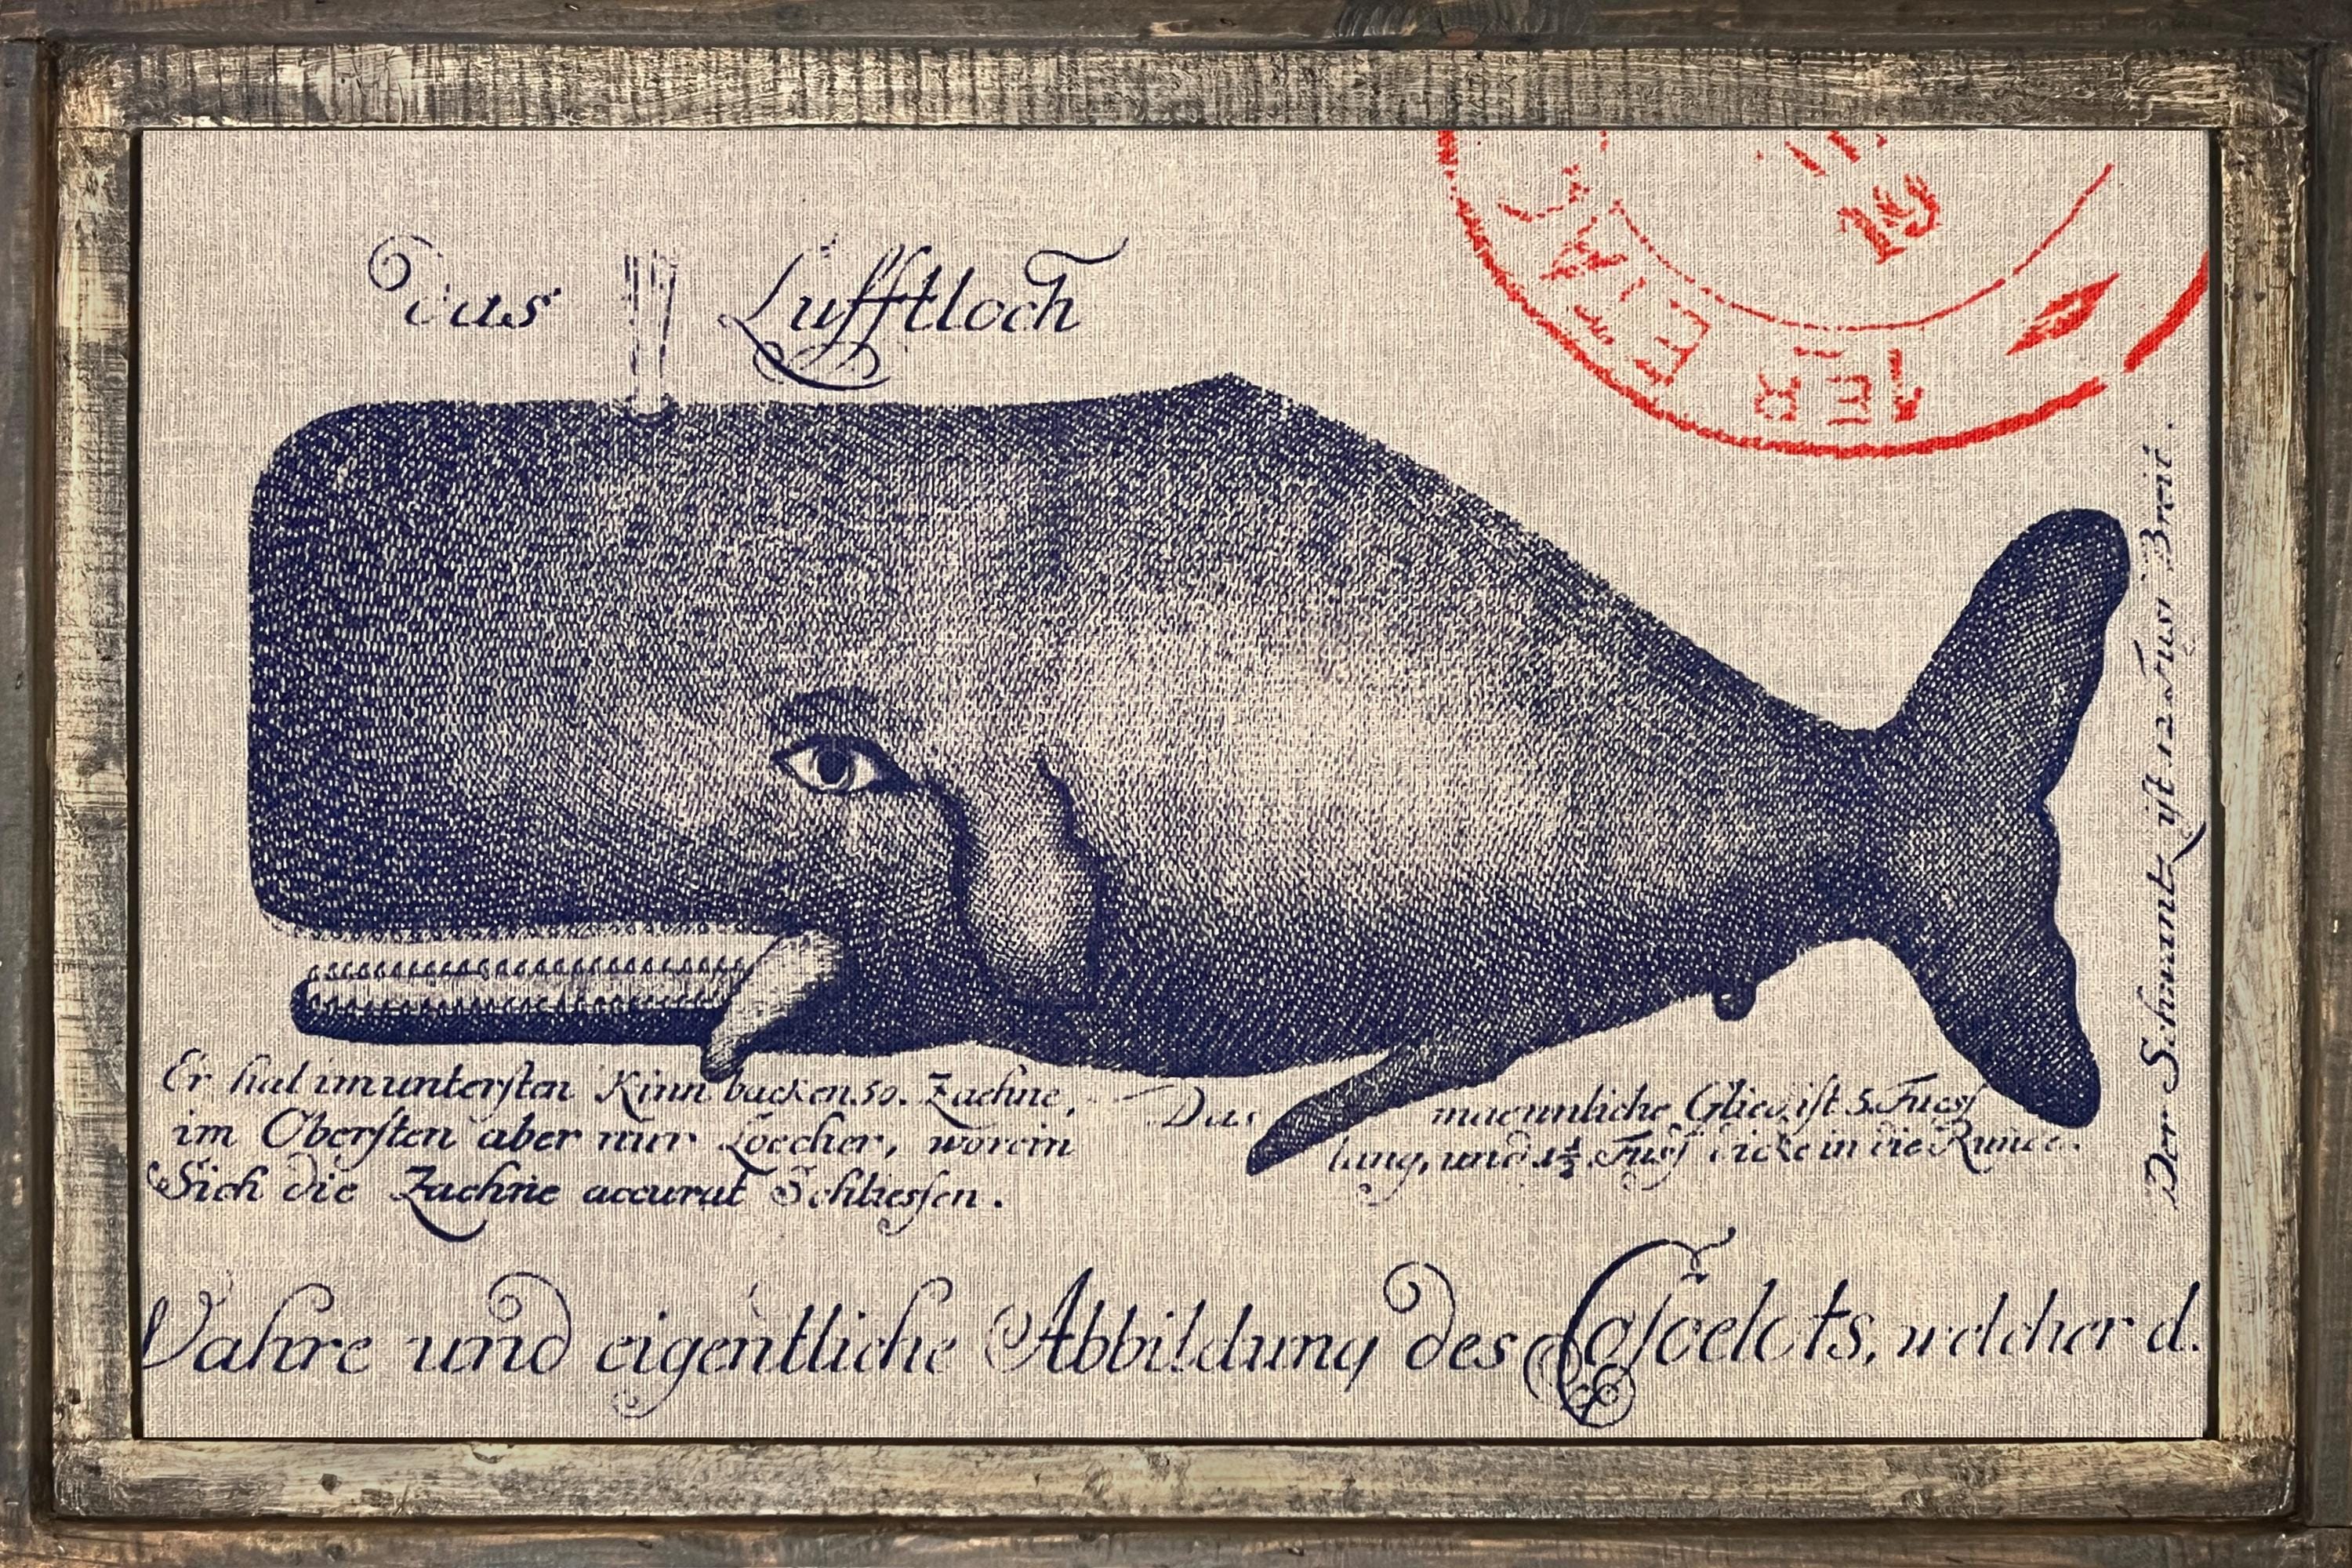 Das Lufftloch
19
Er hat im untersten Kinn backen 50. Zaehne,
im Obersten aber nur Loecher, worein
Sich die Zaehne accurat Schliessen.
Das maennliche Glied ist 5. Fuess
lang, und 1½ Fuss dicke in die Runde.
Der Schwantz ist 12 Fuss Breit.
Wahre und eigentliche Abbildung des Casceelots, welcher d.